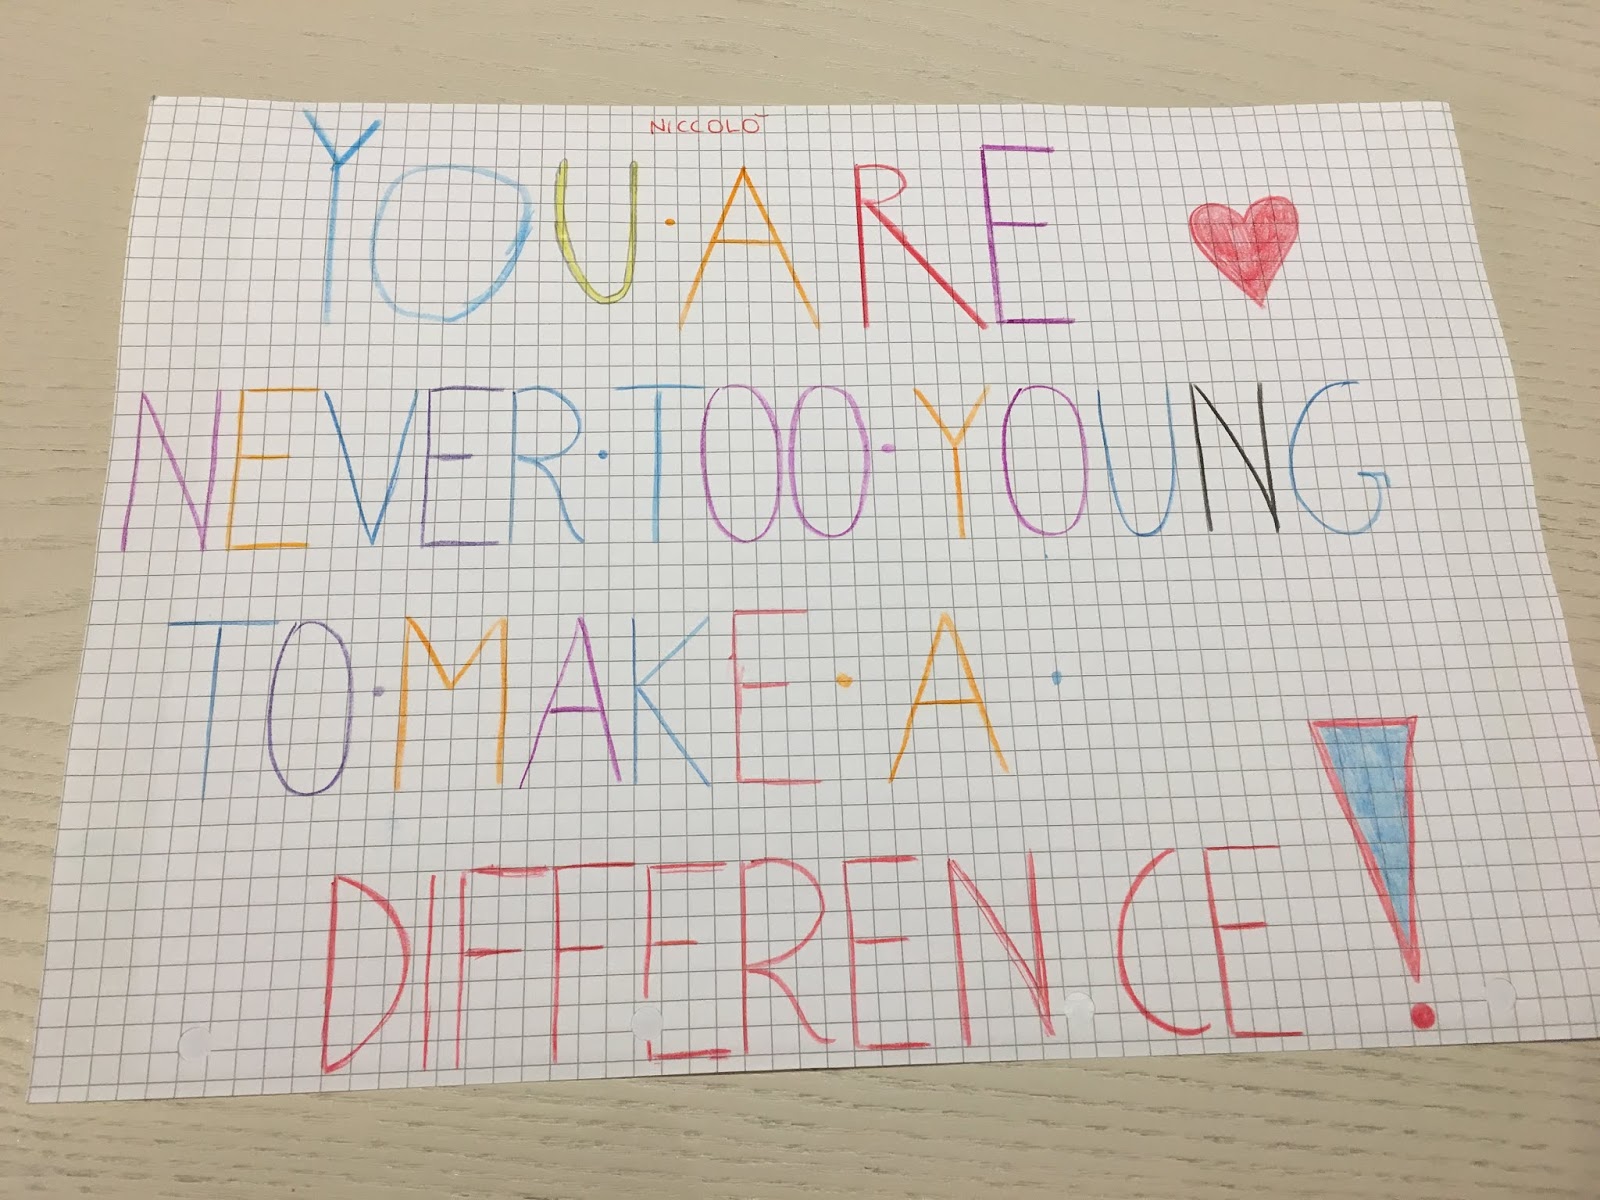 NICCOLÒ
YOU·ARE
NEVER·TOO·YOUNG
TO·MAKE·A·
DIFFERENCE!